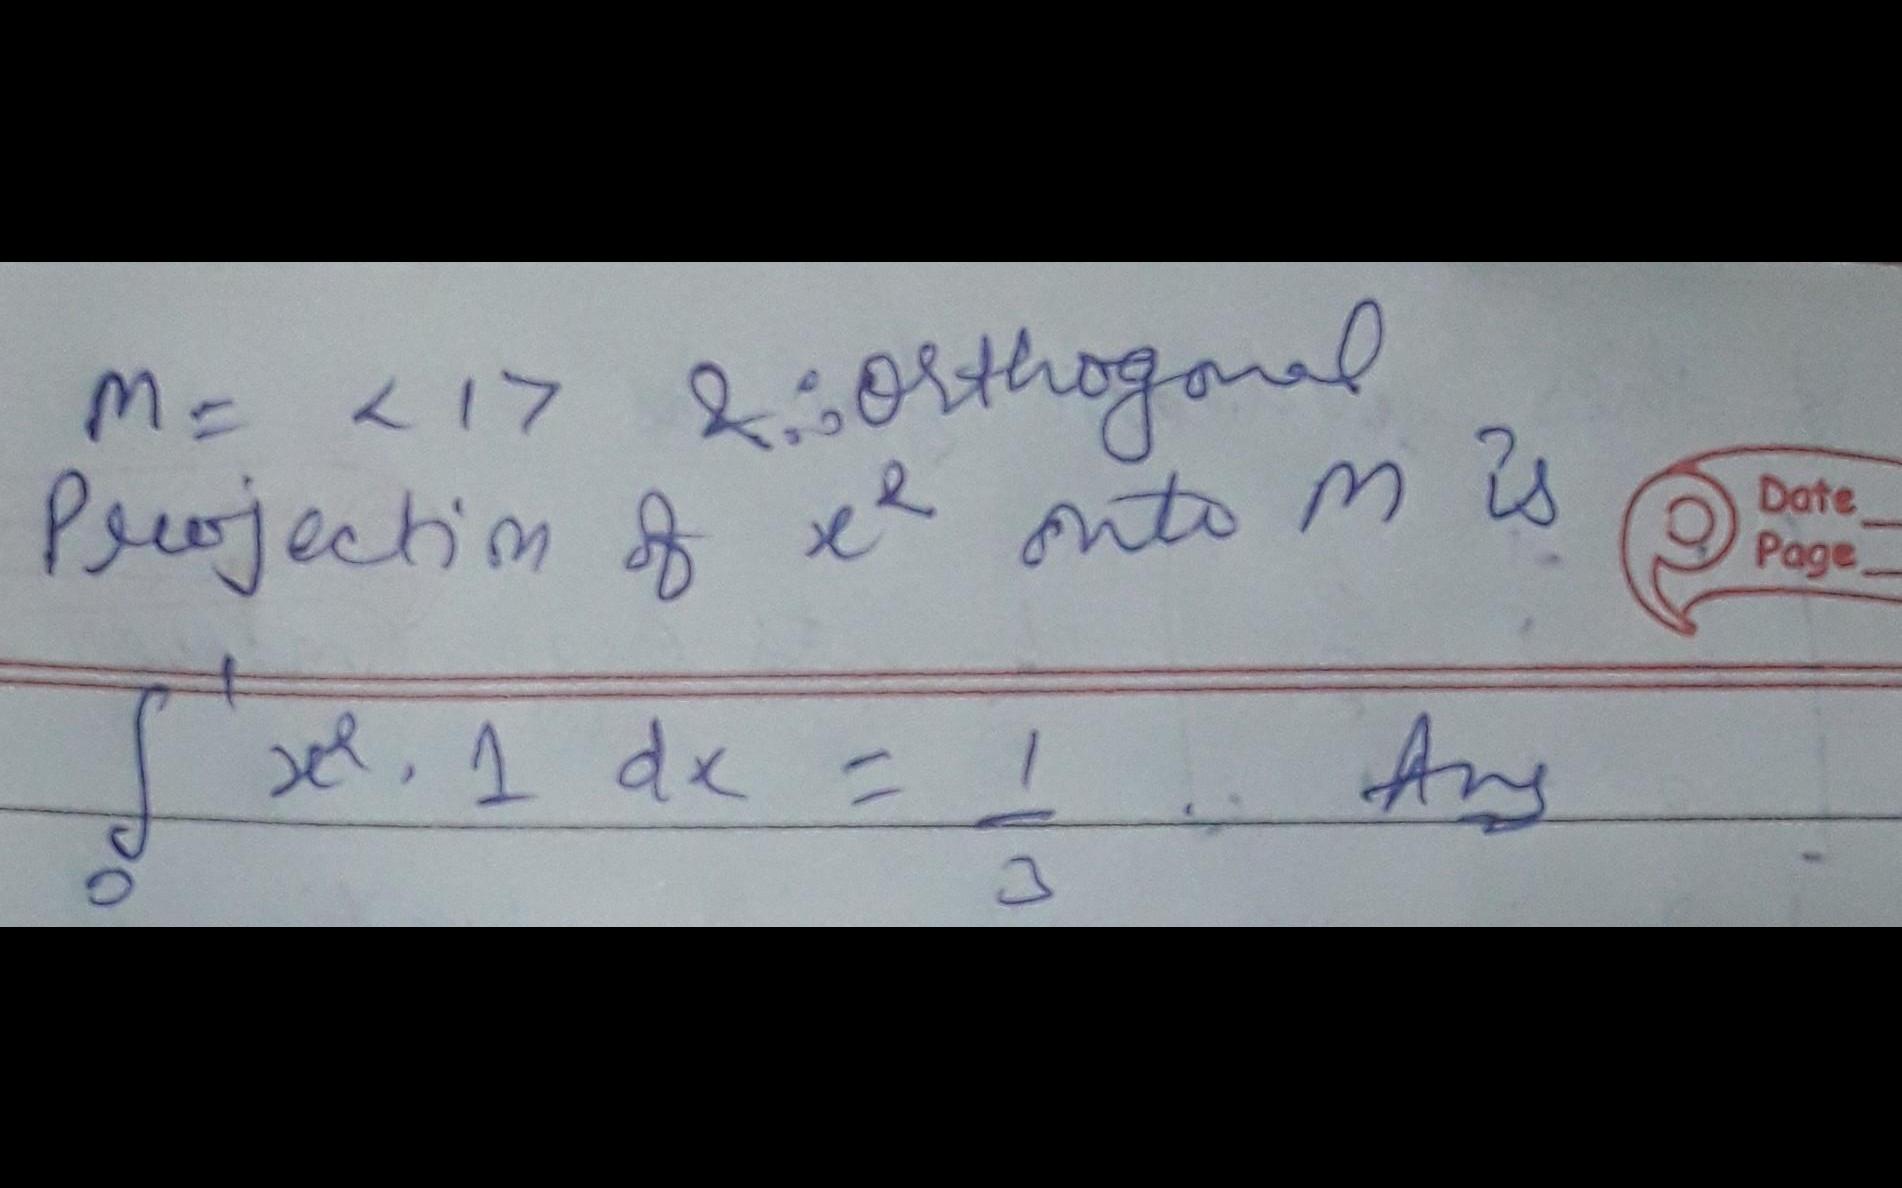 M = < 1 > & ∴ Orthogonal
Projection of x² onto M is
Date
Page
∫₀¹ x² . 1 dx = 1/3 .. Ans